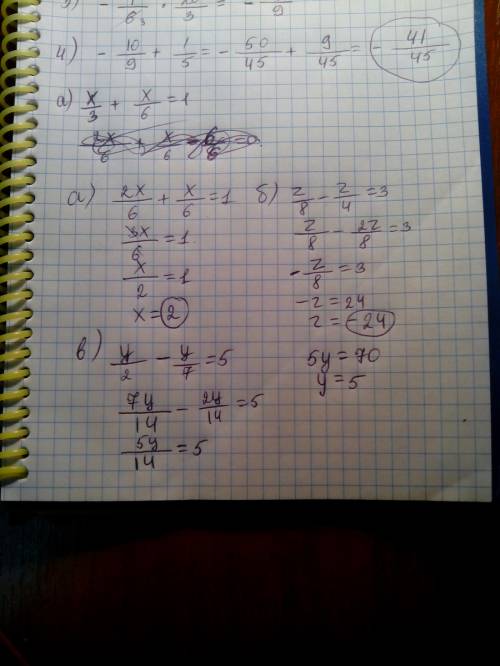 4) - 10/9 + 1/5 = - 50/45 + 9/45 = - 41/45
а) x/3 + x/6 = 1
а) 2x/6 + x/6 = 1
3x/6 = 1
x/2 = 1
x = 2
б) z/8 - z/4 = 3
z/8 - 2z/8 = 3
- z/8 = 3
-z = 24
z = -24
в) y/2 - y/7 = 5
7y/14 - 2y/14 = 5
5y/14 = 5
5y = 70
y = 5